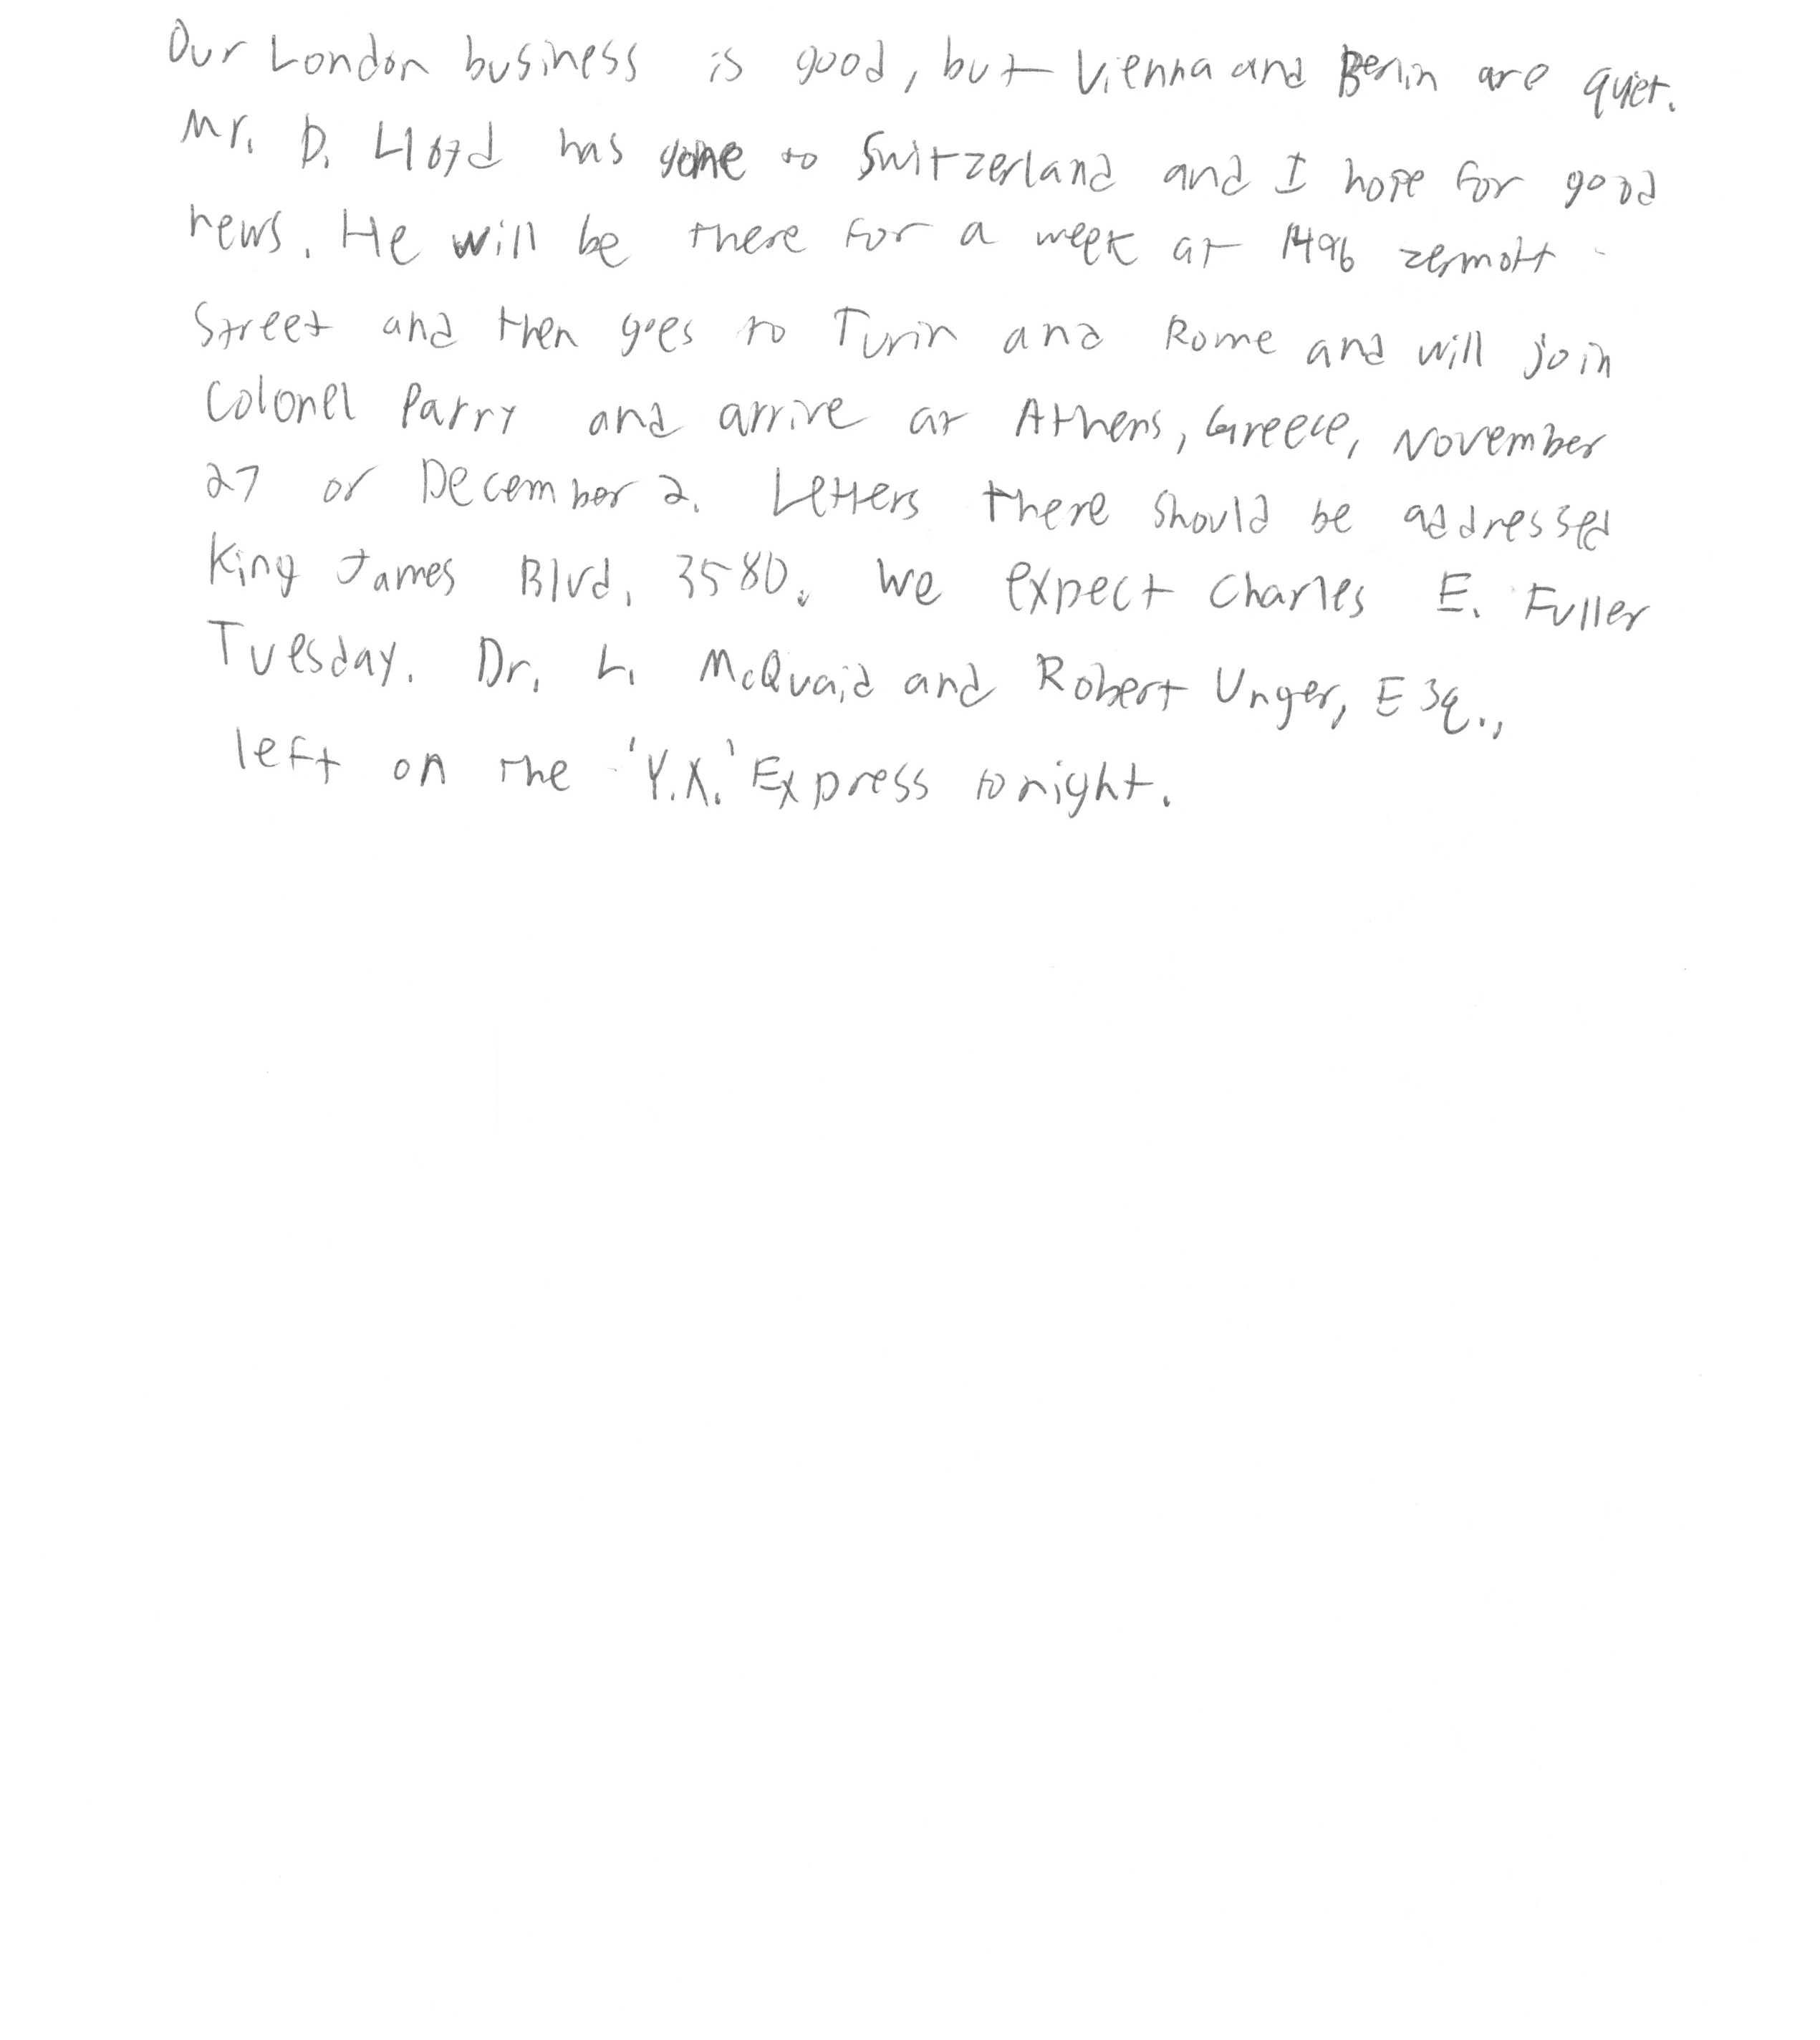 Our London business is good, but Vienna and Berlin are quiet.
Mr. D. Lloyd has gone to Switzerland and I hope for good
news. He will be there for a week at 1496 zermott
Street and then goes to Turin and Rome and will join
Colonel Parry and arrive at Athens, Greece, November
27 or December 2. Letters there should be addressed
King James Blvd, 3580. We expect Charles E. Fuller
Tuesday. Dr. L. McQuaid and Robert Unger, Esq.,
left on the 'Y.X.' Express tonight.